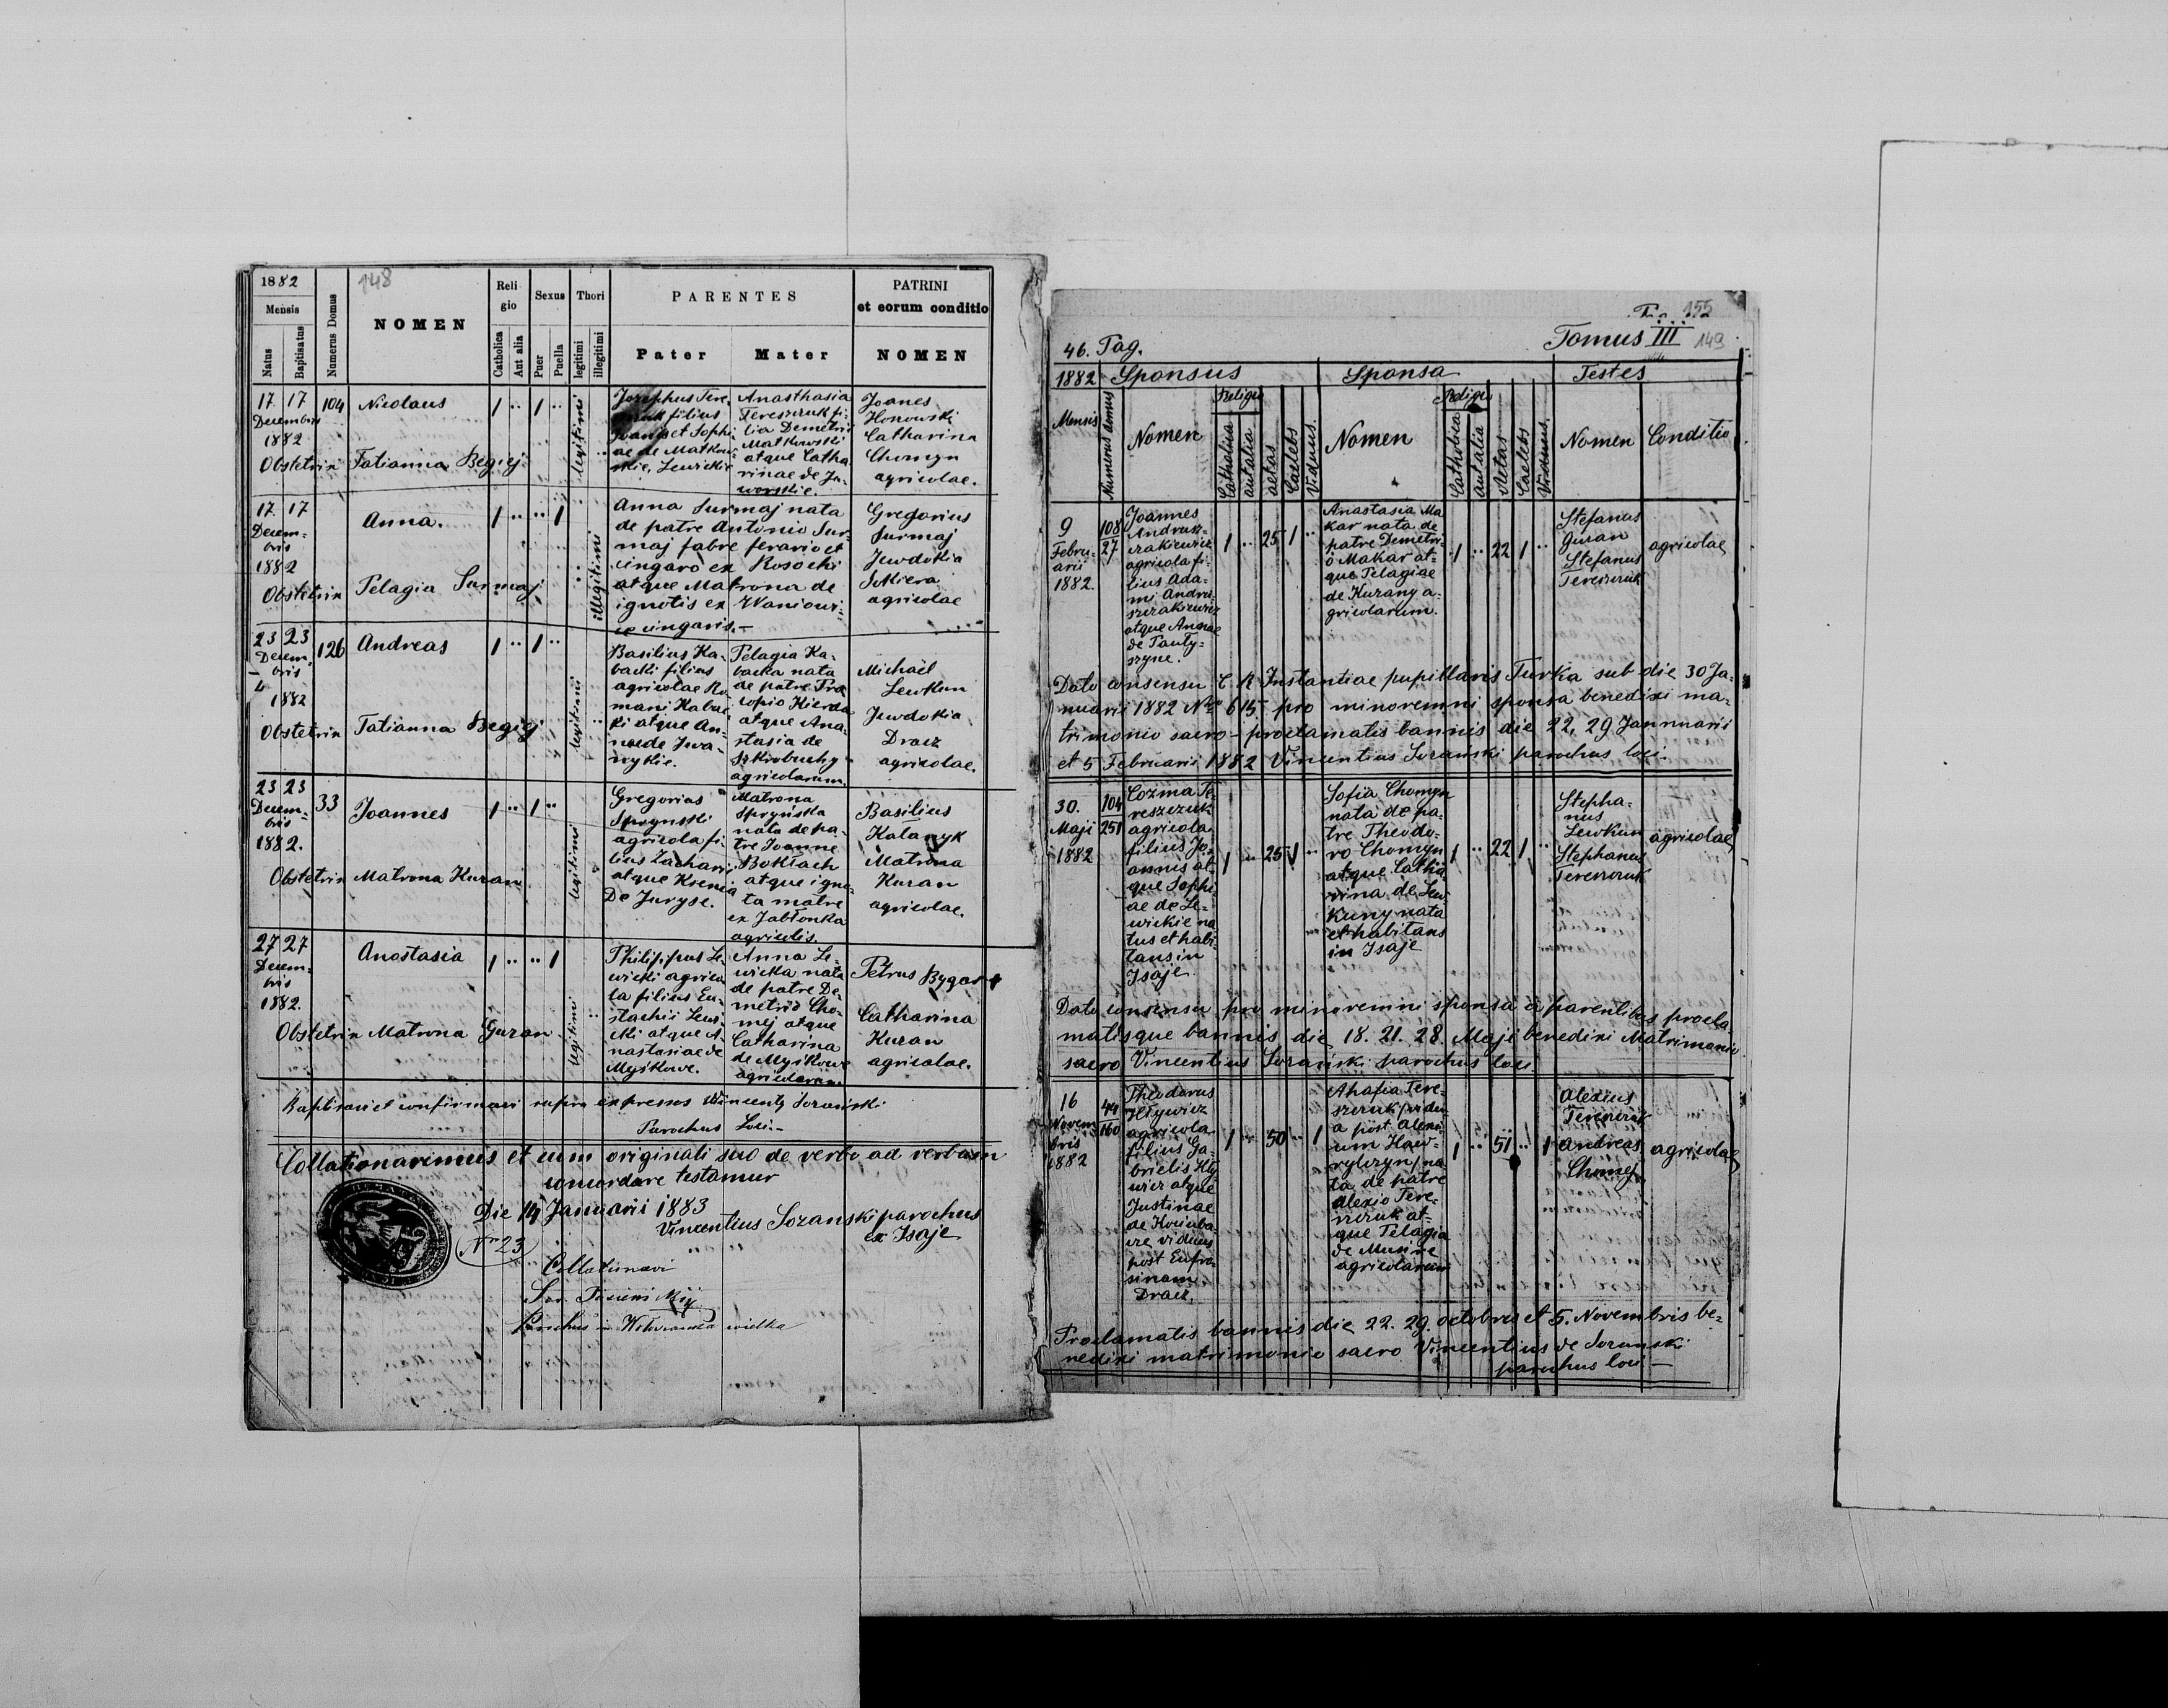 1882
148
Mensis
Natus
Baptisatus
Numerus Domus
NOMEN
Reli
gio
Catholica
Aut alia
Sexus
Puer
Puella
Thori
legitimi
illegitimi
PARENTES
Pater
Mater
PATRINI
et eorum conditio
NOMEN
17 17
Decembris
1882
104
Nicolaus
1 .. 1 ..
legitimi
Josephus Tere-
szczuk filius
Joannis et Sophi-
ae de Matkow-
skie, Lewickie
Anasthasia
Tereszczuk fi-
lia Demetrii
Matkowski
atque Catha-
rinae de Ja-
worskie.
Joanes
Honowski
Catharina
Chomyn
agricolae.
Obstetrix Tatianna Begiej
17 17
Decem-
bris
1882
Anna.
1 .. .. 1
illegitimi
Anna Surmaj nata
de patre Antonio Sur-
maj fabre ferario et
cingaro ex Rosochi
atque Matrona de
ignotis ex
ex cingaris.-
Gregorius
Surmaj
Jewdokia
Sekiera
agricolae
Obstetrix Pelagia Surmaj
23 23
Decem-
bris
1882
126
Andreas
1 .. 1 ..
legitimi
Basilius Ka-
backi filius
agricolae Ro-
mani Kabac-
ki atque An-
nae de Iwa-
nykie.
Pelagia Ka-
backa nata
de patre Pro-
copio Hierda
atque Ana-
stasia de
Szkrobuchy
agricolarum.
Michaël
Lewkun
Jewdokia
Dracz
agricolae.
Obstetrix Tatianna Begiej
23 23
Decem-
bris
1882.
33
Joannes
1 .. 1 ..
legitimi
Gregorius
Sprynski
agricola fi-
lius Zachari
atque Ksenia
De Juryse.
Matrona
Sprynska
nata de pa-
tre Joanne
Boktach
atque igno-
ta matre
ex Jabłonka
agricolis.
Basilius
Kalanyk
Matrona
Kuran
agricolae.
Obstetrix Matrona Kuran
27 27
Decem-
bris
1882.
Anastasia
1 .. .. 1
legitimi
Philippus Le-
wicki agrico-
la filius Eu-
stachii Lewi-
cki atque A-
nastasiae de
Myśkowe.
Anna Le-
wicka nata
de patre De-
metrio Cho-
mej atque
Catharina
de Myśkowe
agricolarum.
Petrus Bygar
Catharina
Kuran
agricolae.
Obstetrix Matrona Guran
Baptisavi et confirmavi supra expressos Wincenty Sozański
Parochus Loci.-
Collationavimus et cum originali suo de verbo ad verbum
concordare testamur
Die 14 Januarii 1883
Vincentius Sozanski parochus
ex Isaje
Nro 23
Collationavi
Parochus in wielka
155
Tomus III 149
46. Pag.
1882 Sponsus Sponsa Testes
Mensis
Numerus domus
Nomen
Religio
Catholica
aut alia
aetas
Caelebs
Viduus.
Nomen
Religio
Catholica
aut alia
Aetas
Caelebs
Viduus.
Nomen
Conditio
9
Febru-
arii
1882.
108
27
Joannes
Andrusz-
czakiewicz
agricola fi-
lius Ada-
mi Andru-
szczakiewicz
atque Annae
de Panty-
szyne.
1 .. 25 1 ..
Anastasia Ma
kar nata de
patre Demetri-
o Makar at-
que Pelagiae
de Kurany a-
gricolarum.
1 .. 22 1 ..
Stefanus
Guran
Stefanus
Tereszczuk
agricolae
Dato consensu C R Instantiae pupillaris Turka sub die 30 Ja-
nuarii 1882 Nro 615 pro minorenni sponsa benedixi ma-
trimonio sacro - proclamatis bannis die 22, 29 Jannuarii
et 5 Februarii 1882 Vincentius Sozanski parochus loci.
30.
Maji
1882
104
251
Cozma Te-
reszczuk
agricola
filius Jo-
annis at-
que Sophi-
ae de Le-
wickie na
tus et habi-
tans in
Isaje
1 .. 25 1 ..
Sofia Chomyn
nata de pa-
tre Theodo-
ro Chomyn
atque Catha-
rina de Lew-
kuny nata
et habitans
in Isaje
1 .. 22 1 ..
Stepha-
nus
Lewkun
Stephanus
Tereszczuk
agricolae
Dato consensu pro minorenni sponsa a parentibus procla-
matisque bannis die 18. 21. 28. Maji benedixi Matrimonio
sacro Vincentius Sozański parochus loci
16
Novem-
bris
1882
44
160
Theodorus
Hlywicz
agricola
filius Ga-
brielis Hly-
wicz atque
Justinae
de
viduus
post Eufro-
sinam
Dracz.
1 .. 50 .. 1
Ahafia Tere-
szczuk vidu-
a post Alexi-
um Haw-
rylczyn na-
ta de patre
Alexio Tere-
szczuk at-
que Pelagia
de Musine
agricolarum
1 .. 51 .. 1
Alexius
Tereszczuk
Andreas
Chomej
agricolae
Proclamatis bannis die 22. 29. octobris et 5. Novembris be-
nedixi matrimonio sacro Vincentius de Sozanski
parochus loci -